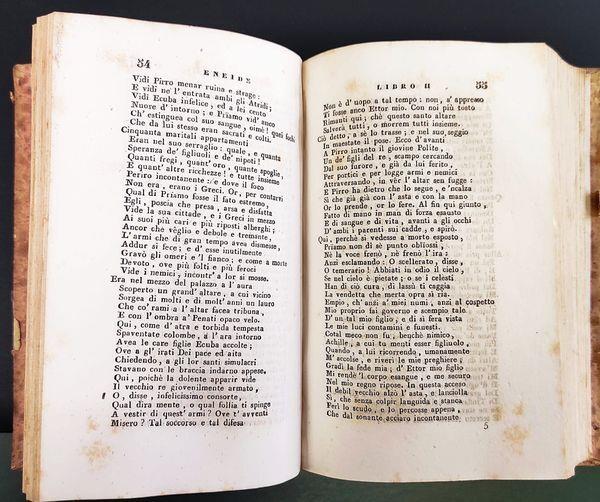 54
ENEIDE
Vidi Pirro menar ruina e strage:
E vidi ne' l'entrata ambi gli Atridi;
Vidi Ecuba infelice, ed a lei cento
Nuore d'intorno; e Priamo vid' anco
Ch'estinguea col suo sangue, oimè! quei fochi
Che da lui stesso eran sacrati e colti.
Cinquanta maritali appartamenti
Eran nel suo serraglio: quale, e quanta
Speranza de' figliuoli e de' nipoti!
Quanti fregi, quant' oro, quante spoglie,
E quant' altre ricchezze! e tutte insieme
Periro incontanente: e dove il foco
Non era, erano i Greci. Or, per contarvi
Qual di Priamo fosse il fato estremo,
Egli, poscia che presa, arsa e disfatta
Vide la sua cittade, e i Greci in mezzo
Ai suoi più cari e più riposti alberghi;
Ancor che vèglio e debole e tremante,
L'armi che di gran tempo avea dismesse,
Addur si fece; e d' esse inutilmente
Gravò gli omeri e 'l fianco; e come a morte
Devoto, ove più folti e più feroci
Vide i nemici, incontr' a lor si mosse.
Era nel mezzo del palazzo a l' aura
Scoperto un grand' altare, a cui vicino
Sorgea di molti e di molt' anni un lauro
Che co' rami a l' altar facea tribuna,
E con l' ombra a' Penati opaco velo.
Qui, come d' atra e torbida tempesta
Spaventate colombe, a l' ara intorno
Avea le care figlie Ecuba accolte;
Ove a gl' irati Dei pace ed aita
Chiedendo, a gli lor santi simulacri
Stavano con le braccia indarno appese.
Qui, poichè la dolente apparir vide
Il vecchio re giovenilmente armato,
O, disse, infelicissimo consorte,
Qual dira mente, o qual follia ti spinge
A vestir di quest' armi? Ove t' avventi
Misero? Tal soccorso e tal difesa
LIBRO II
55
Non è d' uopo a tal tempo: non, s' appresso
Ti fosse anco Ettor mio. Con noi più tosto
Rimanti qui; chè questo santo altare
Salverà tutti, o morrem tutti insieme.
Ciò detto, a sè lo trasse; e nel suo seggio
In maestate il pose. Ecco d' avanti
A Pirro intanto il giovine Polite,
Un de' figli del re, scampo cercando
Dal suo furore, e già da lui ferito,
Per portici e per logge armi e nemici
Attraversando, in vèr l' altar sen fugge:
E Pirro ha dietro che lo segue, e 'ncalza
Sì che già già con l' asta e con la mano
Or lo prende, or lo fere. Al fin qui giunto,
Fatto di mano in man di forza esausto
E di sangue e di vita, avanti a gli occhi
D' ambi i parenti sui cadde, e spirò.
Qui, perchè si vedesse a morte esposto,
Priamo non di sè punto obliossi,
Nè la voce frenò, nè frenò l' ira:
Anzi esclamando: O scellerato, disse,
O temerario! Abbiati in odio il cielo,
Se nel cielo è pietate; o se i celesti
Han di ciò cura, di lassù ti caggia
La vendetta che merta opra sì ria.
Empio, ch' anzi a' miei numi, anzi al cospetto
Mio proprio fai governo e scempio tale
D' un tal mio figlio, e di sì fera vista
Le mie luci contamini e funesti.
Cotal meco non fu, benchè nimico,
Achille, a cui tu menti esser figliuolo,
Quando, a lui ricorrendo, umanamente
M' accolse, e riverì le mie preghiere;
Gradì la fede mia; d' Ettor mio figlio
Mi rendè 'l corpo esangue, e me securo
Nel mio regno ripose. In questa acceso
Il debil vecchio alzò l' asta, e lanciolla
Sì, che senza colpir languida e stanca
Ferì lo scudo, e lo percosse appena,
Che dal sonante acciaro incontanente
5